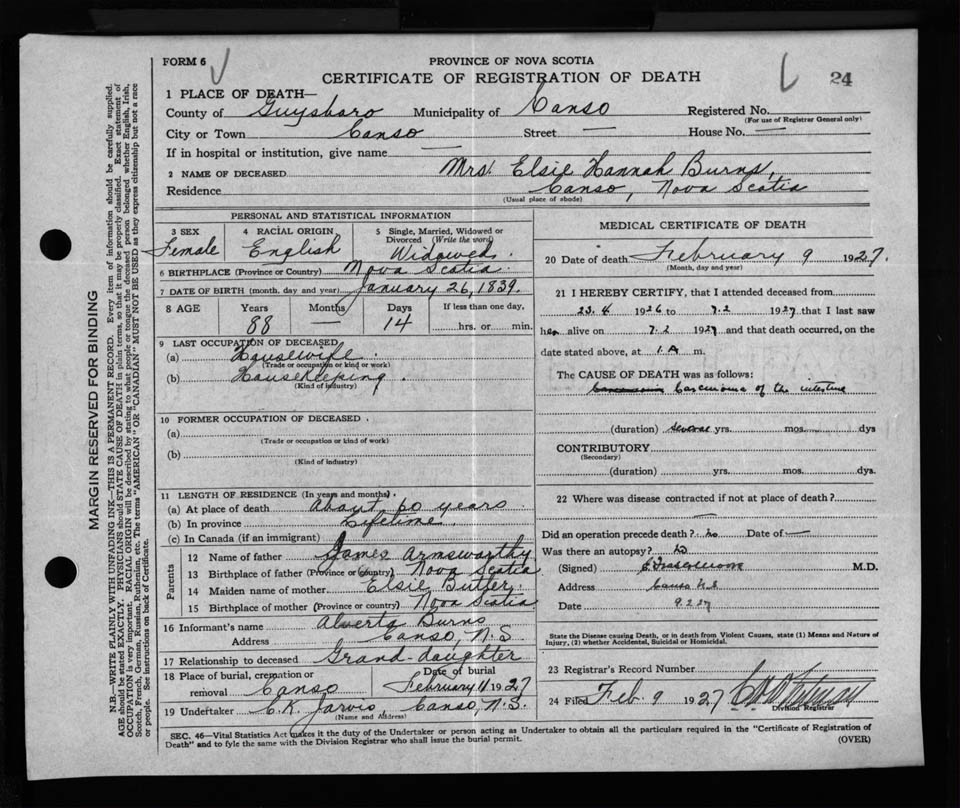 FORM 6
PROVINCE OF NOVA SCOTIA
CERTIFICATE OF REGISTRATION OF DEATH
24
1 PLACE OF DEATH—
County of Guysboro Municipality of Canso Registered No.
(For use of Registrar General only)
City or Town Canso Street — House No. —
If in hospital or institution, give name —
2 NAME OF DECEASED Mrs. Elsie Hannah Burns,
Residence Canso, Nova Scotia
(Usual place of abode)
PERSONAL AND STATISTICAL INFORMATION
3 SEX Female
4 RACIAL ORIGIN English
5 Single, Married, Widowed or Divorced (Write the word) Widowed.
6 BIRTHPLACE (Province or Country) Nova Scotia.
7 DATE OF BIRTH (month, day and year) January 26, 1839.
8 AGE Years Months Days If less than one day,
88 — 14 hrs. or min.
9 LAST OCCUPATION OF DECEASED
(a) Housewife.
(Trade or occupation or kind of work)
(b) Housekeeping.
(Kind of industry)
10 FORMER OCCUPATION OF DECEASED
(a)
(Trade or occupation or kind of work)
(b)
(Kind of industry)
11 LENGTH OF RESIDENCE (In years and months).
(a) At place of death About 50 years.
(b) In province Lifetime.
(c) In Canada (if an immigrant)
Parents
12 Name of father James Armsworthy
13 Birthplace of father (Province or Country) Nova Scotia
14 Maiden name of mother Elsie Butler.
15 Birthplace of mother (Province or country) Nova Scotia
16 Informant's name Alverta Burns
Address Canso, N.S.
17 Relationship to deceased Grand-daughter
18 Place of burial, cremation or removal Canso Date of burial February 11 1927
19 Undertaker C.K. Jarvis, Canso, N.S.
(Name and Address)
MEDICAL CERTIFICATE OF DEATH
20 Date of death February 9 1927.
(Month, day and year)
21 I HEREBY CERTIFY, that I attended deceased from
23.4 1926 to 7.2 1927 that I last saw
her alive on 7.2 1927 and that death occurred, on the
date stated above, at 1.A m.
The CAUSE OF DEATH was as follows:
Carcinoma of the intestine
(duration) several yrs. mos. dys
CONTRIBUTORY
(Secondary)
(duration) yrs. mos. dys.
22 Where was disease contracted if not at place of death?
—
Did an operation precede death? no Date of —
Was there an autopsy? no
(Signed) M.D.
Address Canso N.S
Date 9.2.27
State the Disease causing Death, or in death from Violent Causes, state (1) Means and Nature of
Injury, (2) whether Accidental, Suicidal or Homicidal.
23 Registrar's Record Number
24 Filed Feb 9 1927
Division Registrar
SEC. 46—Vital Statistics Act makes it the duty of the Undertaker or person acting as Undertaker to obtain all the particulars required in the "Certificate of Registration of
Death" and to fyle the same with the Division Registrar who shall issue the burial permit.
(OVER)
MARGIN RESERVED FOR BINDING
N.B.—WRITE PLAINLY WITH UNFADING INK—THIS IS A PERMANENT RECORD. Every item of information should be carefully supplied.
AGE should be stated EXACTLY. PHYSICIANS should STATE CAUSE OF DEATH in plain terms, so that it may be properly classified. Exact statement of
OCCUPATION is very important. RACIAL ORIGIN will be described by stating to what people or tongue the deceased person belonged whether English, Irish,
Scotch, French, German, Russian, Ruthenian, etc. The terms "AMERICAN" OR "CANADIAN" MUST NOT BE USED as they express citizenship but not a race
or people. See instructions on back of Certificate.